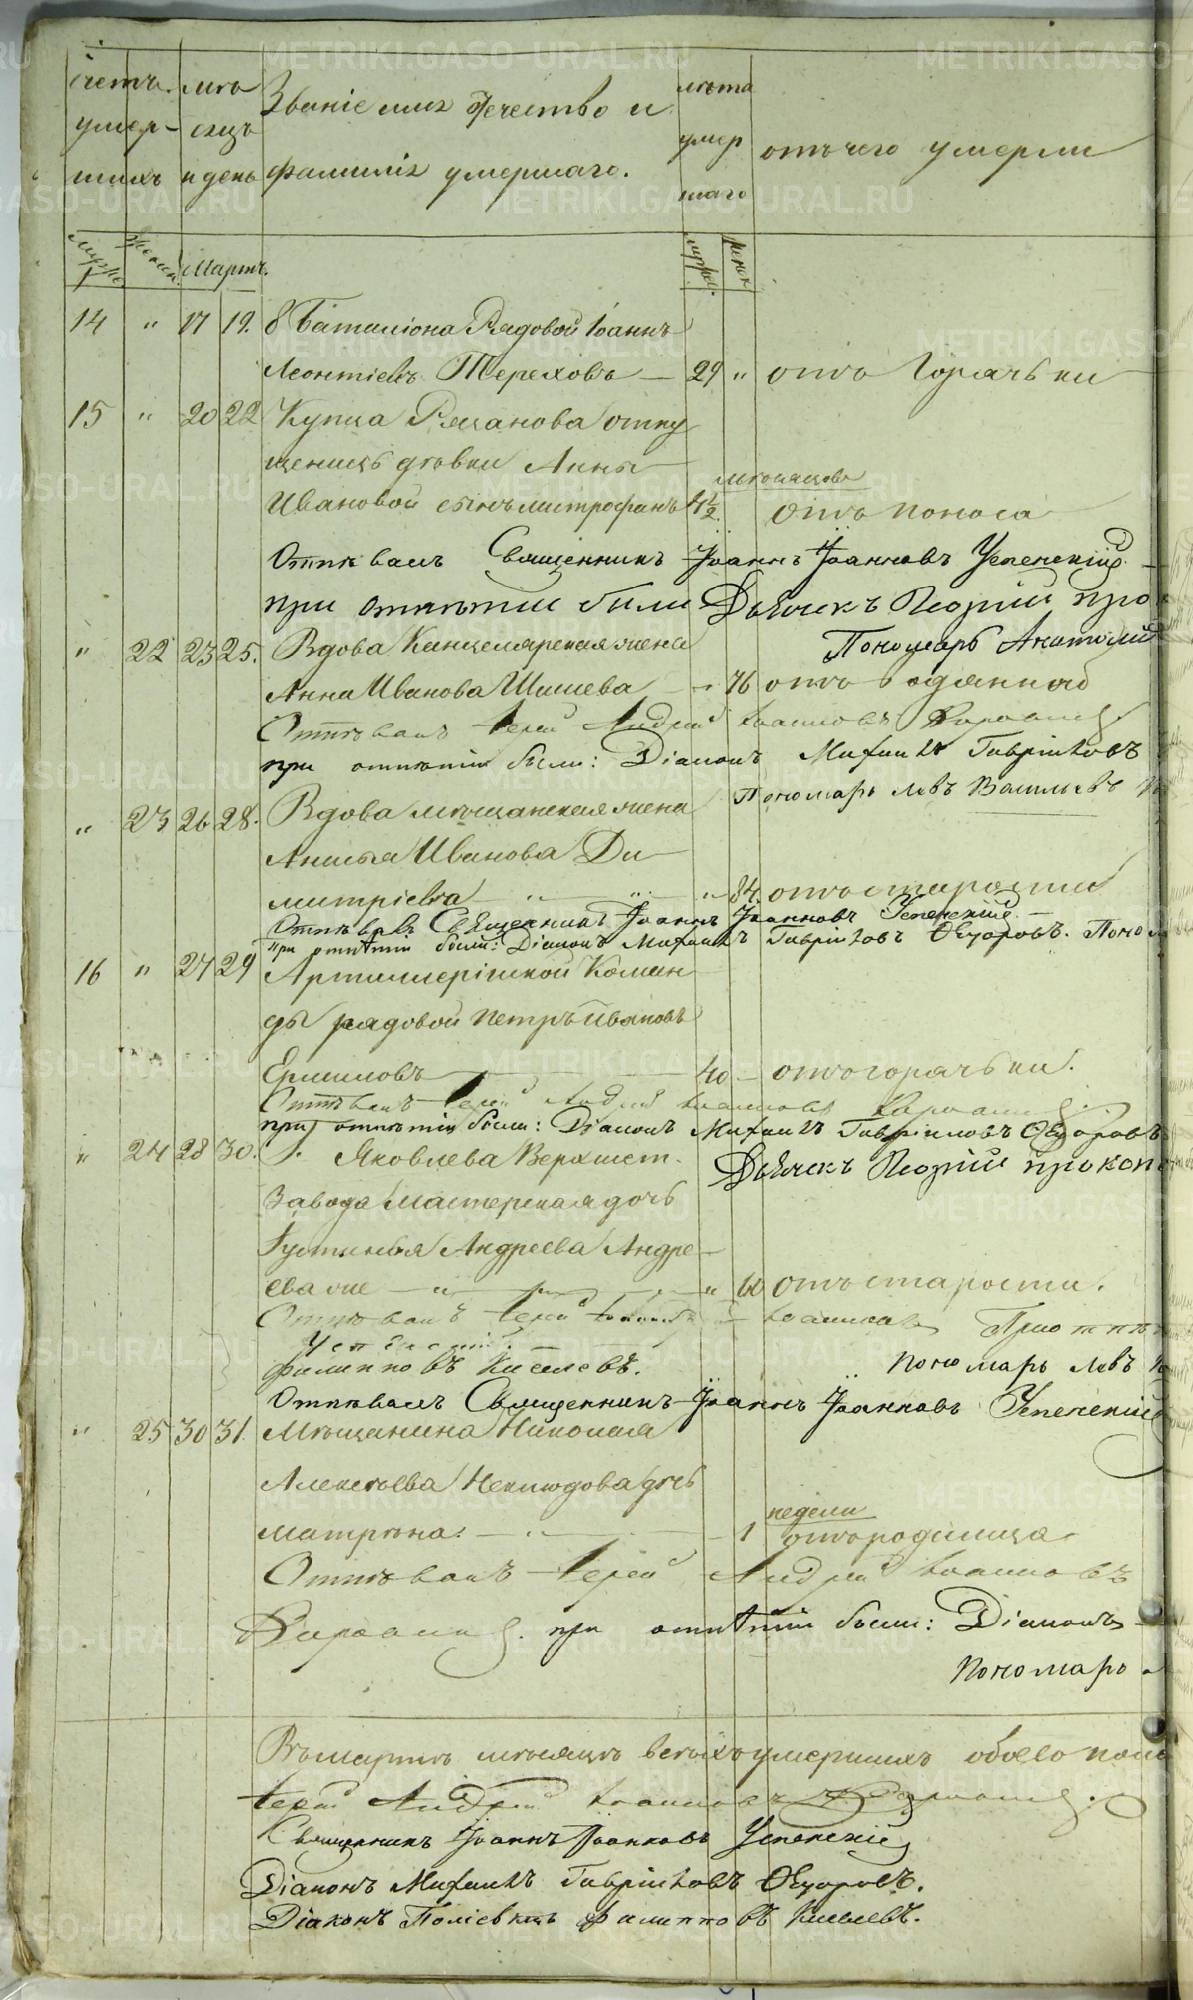 METRIKI.GASO-URAL.RU
счетъ умер- шихъ
мѣ сяцъ и день
Званіе имя Отечество и фамилія умершаго.
лѣта умер шаго
отъ чего умерли
Мартъ.
14 " 17 19. 8 Баталіона Рядовой Іоаннъ
Леонтіевъ Тереховъ — 29 " отъ Горячьки
15 " 20 22 Купца Рязанова отпу
щеницы дѣвки Анны
мѣсяцовъ
Ивановой сынъ митрофанъ 4½ отъ поноса
Отпѣвалъ Священникъ Іоаннъ Іоанновъ Успенскій
при отпѣтіи были Дьячекъ Георгій про
Пономарь Анатолій
" 22 23 25. Вдова Канцелярская жена
Анна Иванова Шишева " 76 отъ водянной
Отпѣвалъ Іерей Андрей Іоанновъ
при отпѣтіи были: Діаконъ Михаилъ Гавріиловъ
Пономарь Левъ Васильевъ
" 23 26 28. Вдова мѣщанская жена
Анисья Иванова Ди
митріевна " " " 84. отъ старости
Отпѣвалъ Священникъ Іоаннъ Іоанновъ Успенскій.
при отпѣтіи были: Діаконъ Михаилъ Гавріиловъ Ѳедоровъ. Поном
16 " 27 29 Артиллерійской Коман
ды рядовой петръ Ивановъ
Ермиловъ 40 отъ горячьки.
Отпѣвалъ Іерей Андрей Іоанновъ
при отпѣтіи были: Діаконъ Михаилъ Гавріиловъ Ѳедоровъ
Дьячекъ Георгій прокоп
" 24 28 30. Г. Яковлева Верхисет.
Завода Мастерская дочь
Устинья Андреева Андре
ева же " " " 60 отъ старости.
Отпѣвалъ Іерей Іоаннъ Іоанновъ При отпѣ
Успенскій.
филипповъ Киселевъ. пономарь Левъ
Отпѣвалъ Священникъ Іоаннъ Іоанновъ Успенскій
" 25 30 31. Мѣщанина Николая
Алексѣева Неклюдова дочь
недели
матрёна. " 1 отъ родимца
Отпѣвалъ Іерей Андрей Іоанновъ
при отпѣтіи были: Діаконъ
Пономарь
Въ мартѣ мѣсяцѣ всѣхъ умершихъ обоего пола
Іерей Андрей Іоанновъ
Священникъ Іоаннъ Іоанновъ Успенскій
Діаконъ Михаилъ Гавріиловъ Ѳедоровъ.
Діаконъ Поліевктъ Филипповъ Киселевъ.